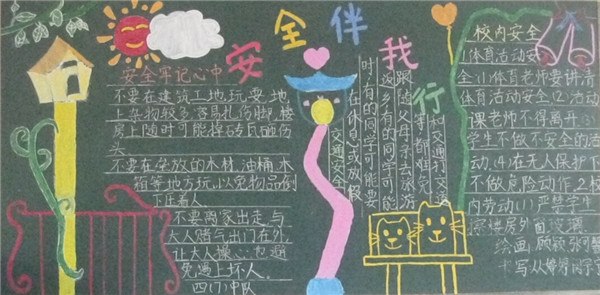 安全伴我行
安全牢记心中
不要在建筑工地玩耍,地
上杂物较多,容易扎伤脚,楼
房上随时可能掉砖瓦砸伤
头。
不要在垒放的木材,油桶,木
箱等地方玩,以免物品倒
下压着人
不要离家出走与
大人赌气出门在外,
让大人操心,也避
免遇上坏人。
四(7)中队
交通安全
在休息或放假
时,有的同学可能要
返乡,有的同学可能
跟随父母亲去旅游
等都难免
校内安全
1体育活动安
全:(1)体育老师要讲清
体育活动安全(2)活动
课老师不得离开(3)
学生不做不安全的活
动,(4)在无人保护下
不做危险动作,2校
内劳动(1)严禁学生
擦楼房外面玻璃
绘画:顾颖
书写:从婷婷